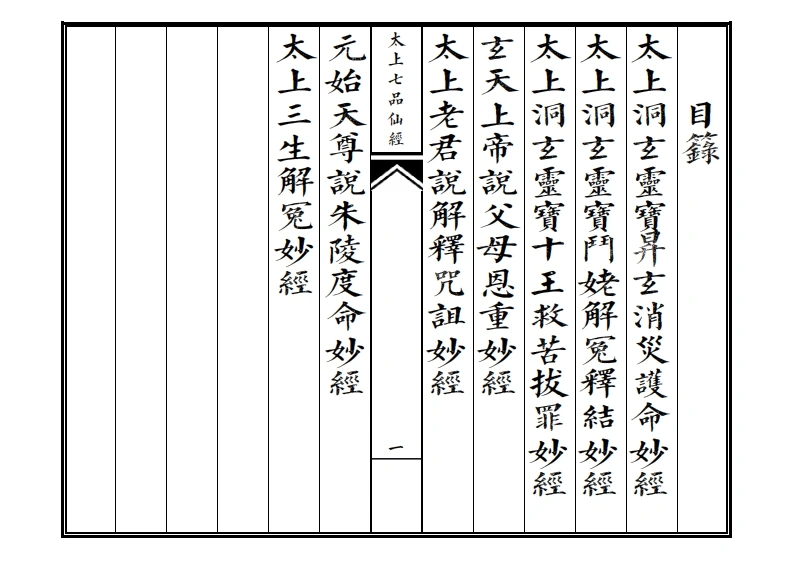 目錄
太上洞玄靈寶昇玄消災護命妙經
太上洞玄靈寶鬥姥解冤釋結妙經
太上洞玄靈寶十王救苦拔罪妙經
玄天上帝說父母恩重妙經
太上老君說解釋咒詛妙經
太上七品仙經
一
元始天尊說朱陵度命妙經
太上三生解冤妙經